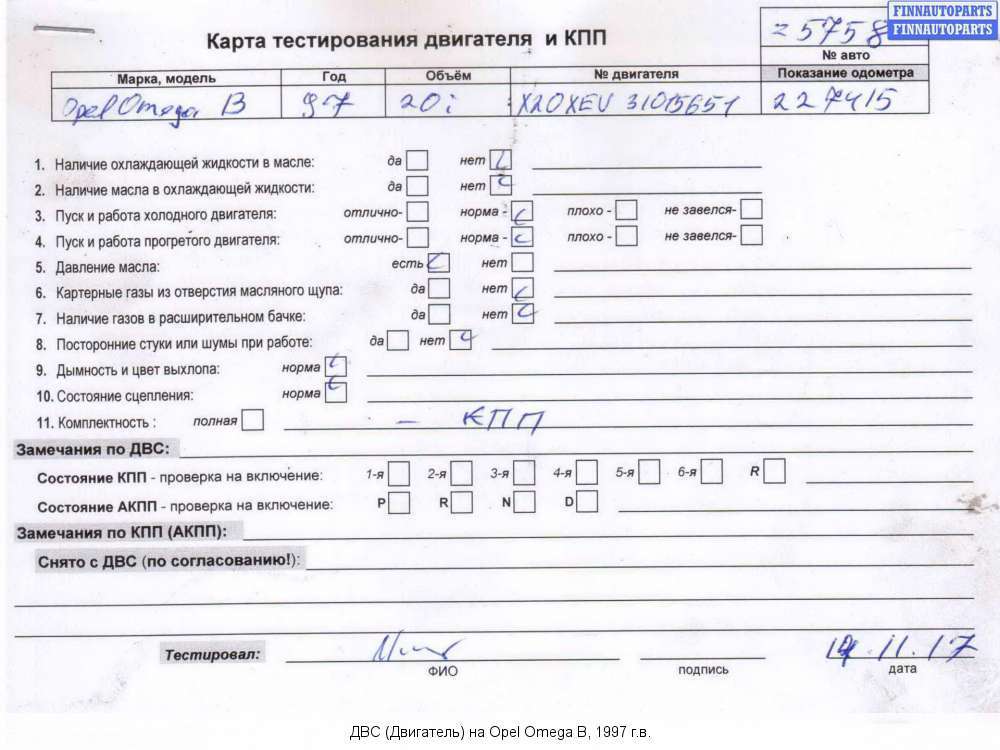 FINNAUTOPARTS
FINNAUTOPARTS
z 5758
№ авто
Карта тестирования двигателя и КПП
Марка, модель Год Объём № двигателя Показание одометра
Opel Omega B 97 20i X20XEV 31015651 227415
1. Наличие охлаждающей жидкости в масле: да нет
2. Наличие масла в охлаждающей жидкости: да нет
3. Пуск и работа холодного двигателя: отлично- норма - плохо - не завелся-
4. Пуск и работа прогретого двигателя: отлично- норма - плохо - не завелся-
5. Давление масла: есть нет
6. Картерные газы из отверстия масляного щупа: да нет
7. Наличие газов в расширительном бачке: да нет
8. Посторонние стуки или шумы при работе: да нет
9. Дымность и цвет выхлопа: норма
10. Состояние сцепления: норма
11. Комплектность : полная – КПП
Замечания по ДВС:
Состояние КПП - проверка на включение: 1-я 2-я 3-я 4-я 5-я 6-я R
Состояние АКПП - проверка на включение: P R N D
Замечания по КПП (АКПП):
Снято с ДВС (по согласованию!):
Тестировал: .11.17
ФИО подпись дата
ДВС (Двигатель) на Opel Omega B, 1997 г.в.